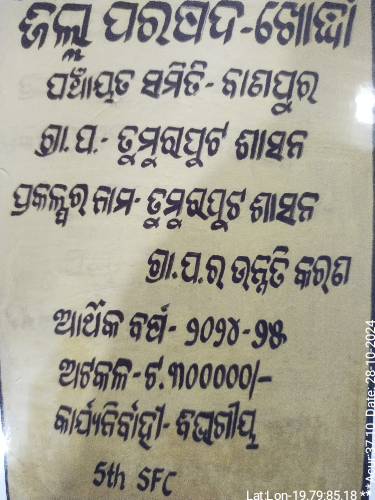 ଜିଲ୍ଲା ପରିଷଦ-ଖୋର୍ଦ୍ଧା
ପଞ୍ଚାୟତ ସମିତି- ବାଣପୁର
ଗ୍ରା.ପ.- ତୁମୁରାପୁଟ ଶାସନ
ପ୍ରକଳ୍ପର ନାମ- ତୁମୁରାପୁଟ ଶାସନ
ଗ୍ରା.ପ.ର ଉନ୍ନତି କରଣ
ଆର୍ଥିକ ବର୍ଷ- ୨୦୨୪-୨୫
ଅଟକଳି-ଟ.୩୦୦୦୦୦/-
କାର୍ଯ୍ୟନିର୍ବାହୀ- ବିଭାଗୀୟ
5th SFC
Lat:Lon-19.79:85.18
**Acur:37.10, Date: 28-10-2024